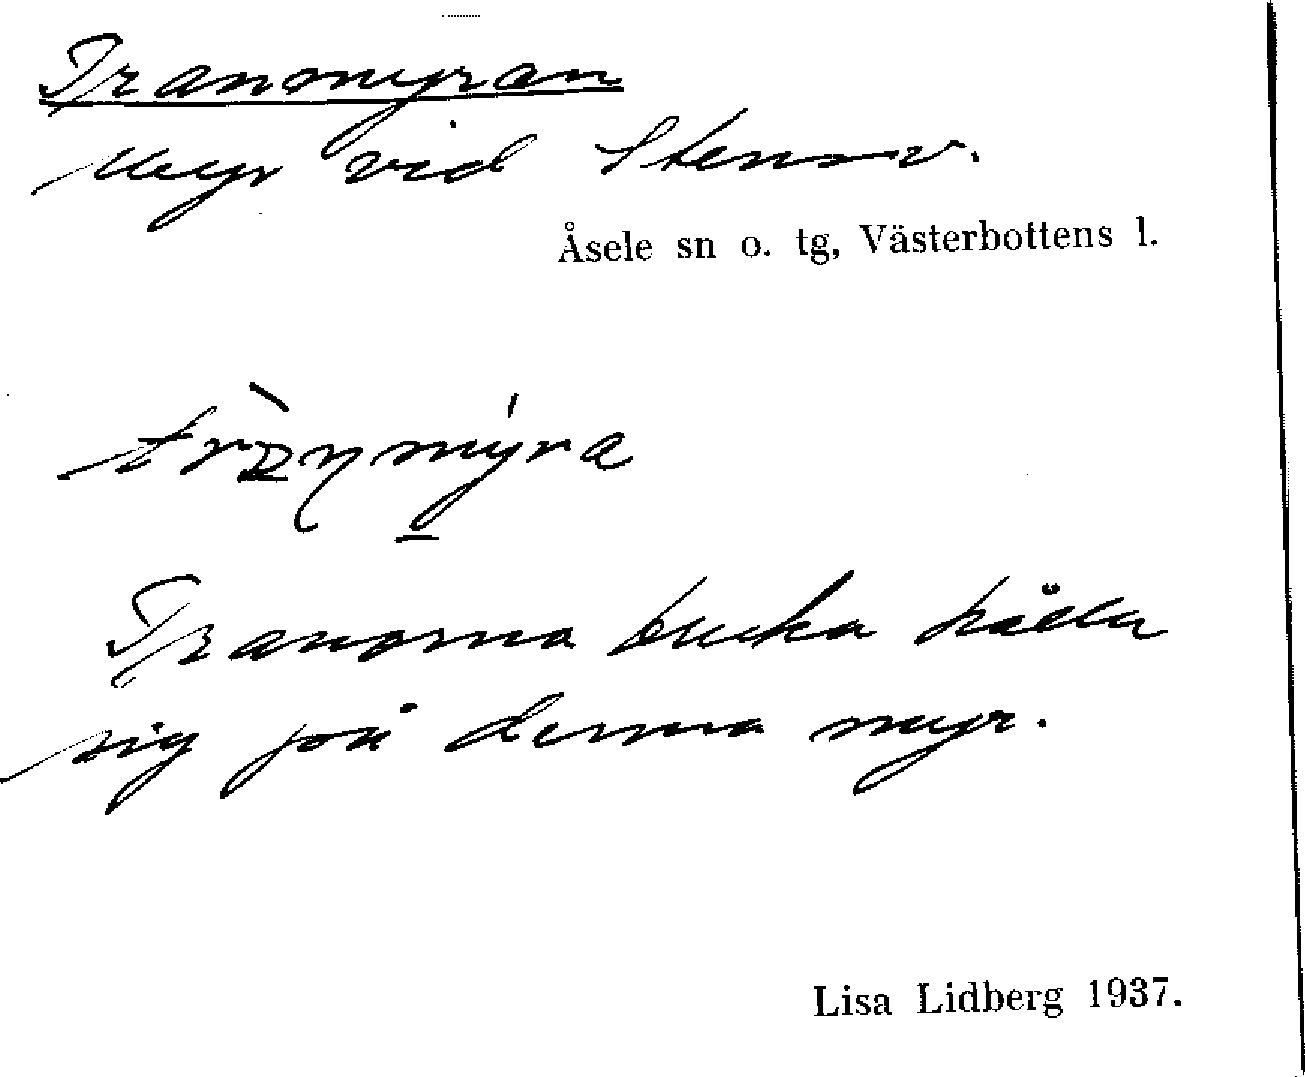 Tranmyran
Myr vid Stensv.
Åsele sn o. tg, Västerbottens l.
Tranorna bruka hålla
sig på denna myr.
Lisa Lidberg 1937.